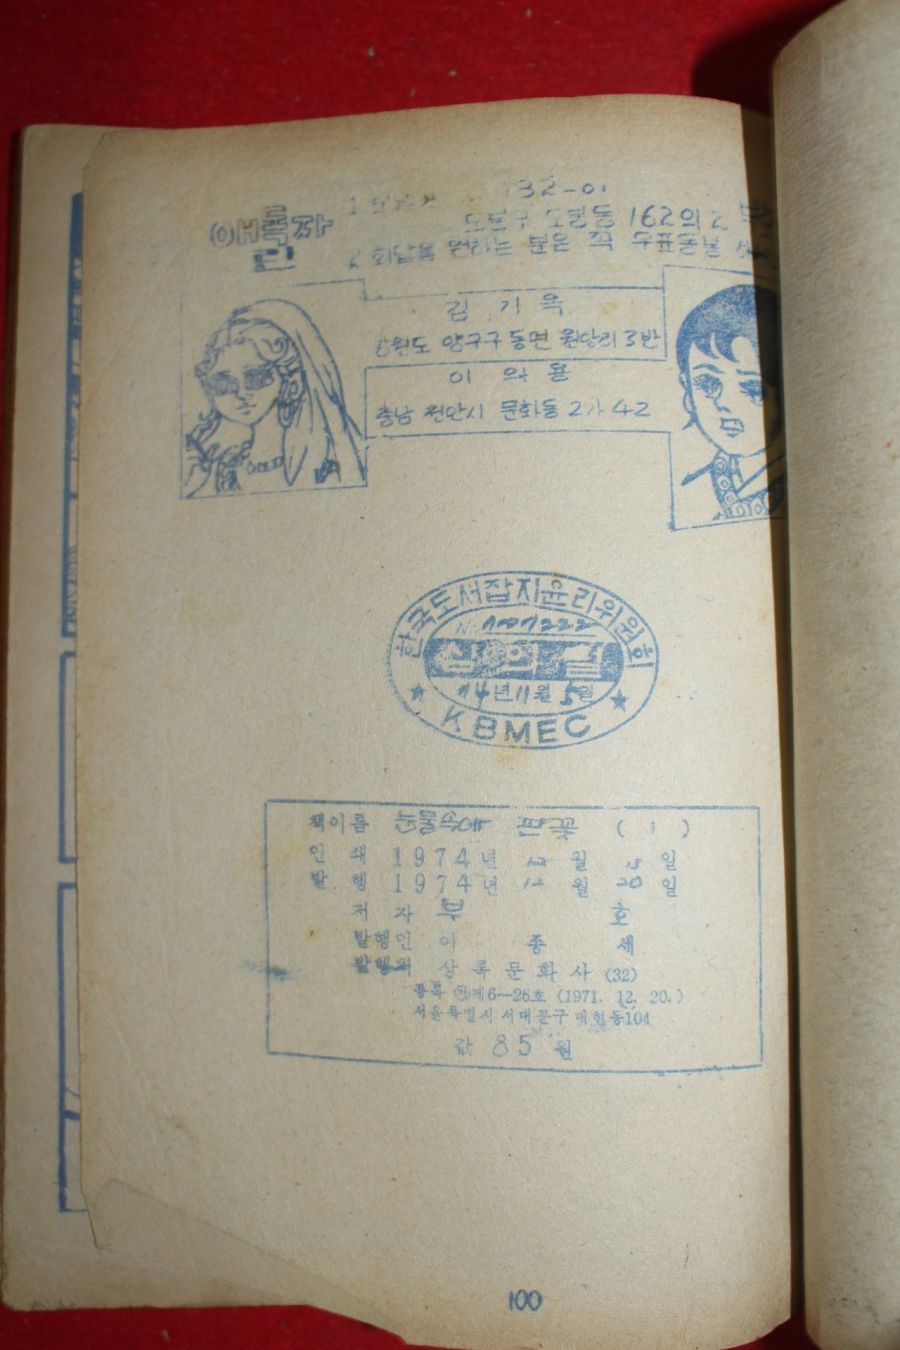 애독자
란
132-01
도봉구 도봉동 162의 2
2 회답을 원하는 분은 꼭 우표동봉
김 기 옥
강원도 양구군 동면 원당리 3반
이 의 용
충남 천안시 문화동 2가 42
한국도서잡지윤리위원회
심의필
74년 11월 5일
KBMEC
책이름 눈물속에 핀꽃 ( 1 )
인 쇄 1974년 12월 15일
발 행 1974년 12월 20일
저 자 부 호
발행인 이 종 세
발행처 상 록 문 화 사 (32)
등록 제6-26호 (1971. 12. 20.)
서울특별시 서대문구 대현동104
값 85 원
100